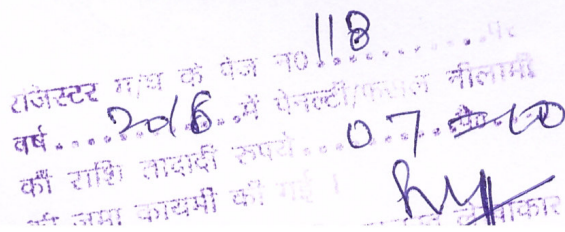 रजिस्टर ग/घ के पेज न० 118 ............ पर
वर्ष .... 2016 .. में पेनल्टी/फसल नीलामी
की राशि तादादी रूपये .... 07
की जमा कायमी की गई ।
लेखाकार